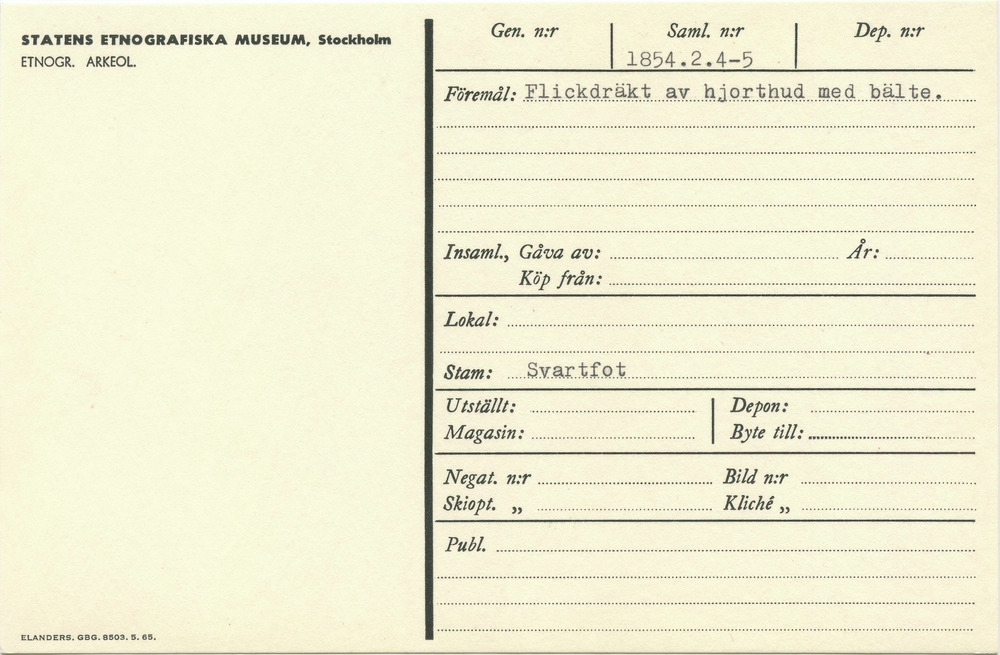 STATENS ETNOGRAFISKA MUSEUM, Stockholm
ETNOGR. ARKEOL.
Gen. n:r Saml. n:r Dep. n:r
1854.2.4-5
Föremål: Flickdräkt av hjorthud med bälte.
Insaml., Gåva av: År:
Köp från:
Lokal:
Stam: Svartfot
Utställt: Depon:
Magasin: Byte till:
Negat. n:r Bild n:r
Skiopt. „ Kliché „
Publ.
ELANDERS. GBG. 8503. 5. 65.